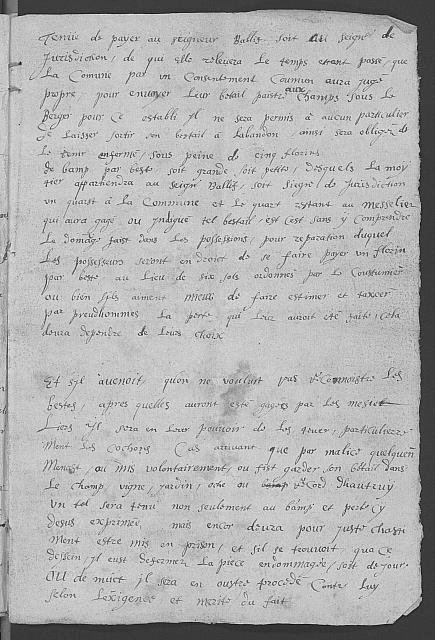 Tenue de payer au seigneur Ballif, soit au seigr de
Jurisdiction, de qui elle relevera le temps estant passé, que
La Comune par un Consentement Commun aura jugé
propre, pour envoyer leur betail paistre aux champs sous le
Berger pour ce establi il ne sera permis a aucun particulier
de laisser sortir son bestail a labandon, ainsi sera obligez de
le tenir enfermé, sous peine de cinq florins
de bamp par beste, soit grande, soit petite, desquels la moy
tier appartiendra au Seigr Ballif, soit Siegr de Jurisdiction
un quart à la Commune et le quart restant au messelier
qui aura gagé ou indiqué tel bestail, et c'est sans y comprendre
le domage fait dans les possessions, pour reparation duquel
les possesseurs seront en droict de se faire payer un florin
par beste au lieu de six sols ordonnés par le Coustumier
ou bien s'ils aiment mieux de faire estimer et taxer
par preudhommes la perte qui leur auroit eté faite, cela
devra dependre de leurs choix
Et s'il avenoit, qu'on ne voulust pas reconnoistre les
bestes, apres quelles auront esté gagées par les messel
liers il sera en leur pouvoir de les tuer, particuliere
ment les cochons Cas arrivant que par malice quelqu'un
menast, ou mis volontairement, ou fist garder son bétail dans
le champ, vigne, jardin, oche ou record d'hautruy
un tel sera tenu non seulement au bamp et perte cy
desus exprimée mais encor devra pour juste chasti
ment estre mis en prison, et s'il se trouvoit que a ce
dessein, il eust defermez la piece endommagée, soit de jour
ou de nuict il sera en oustre procedé contre luy
selon l'exigence et merite du fait